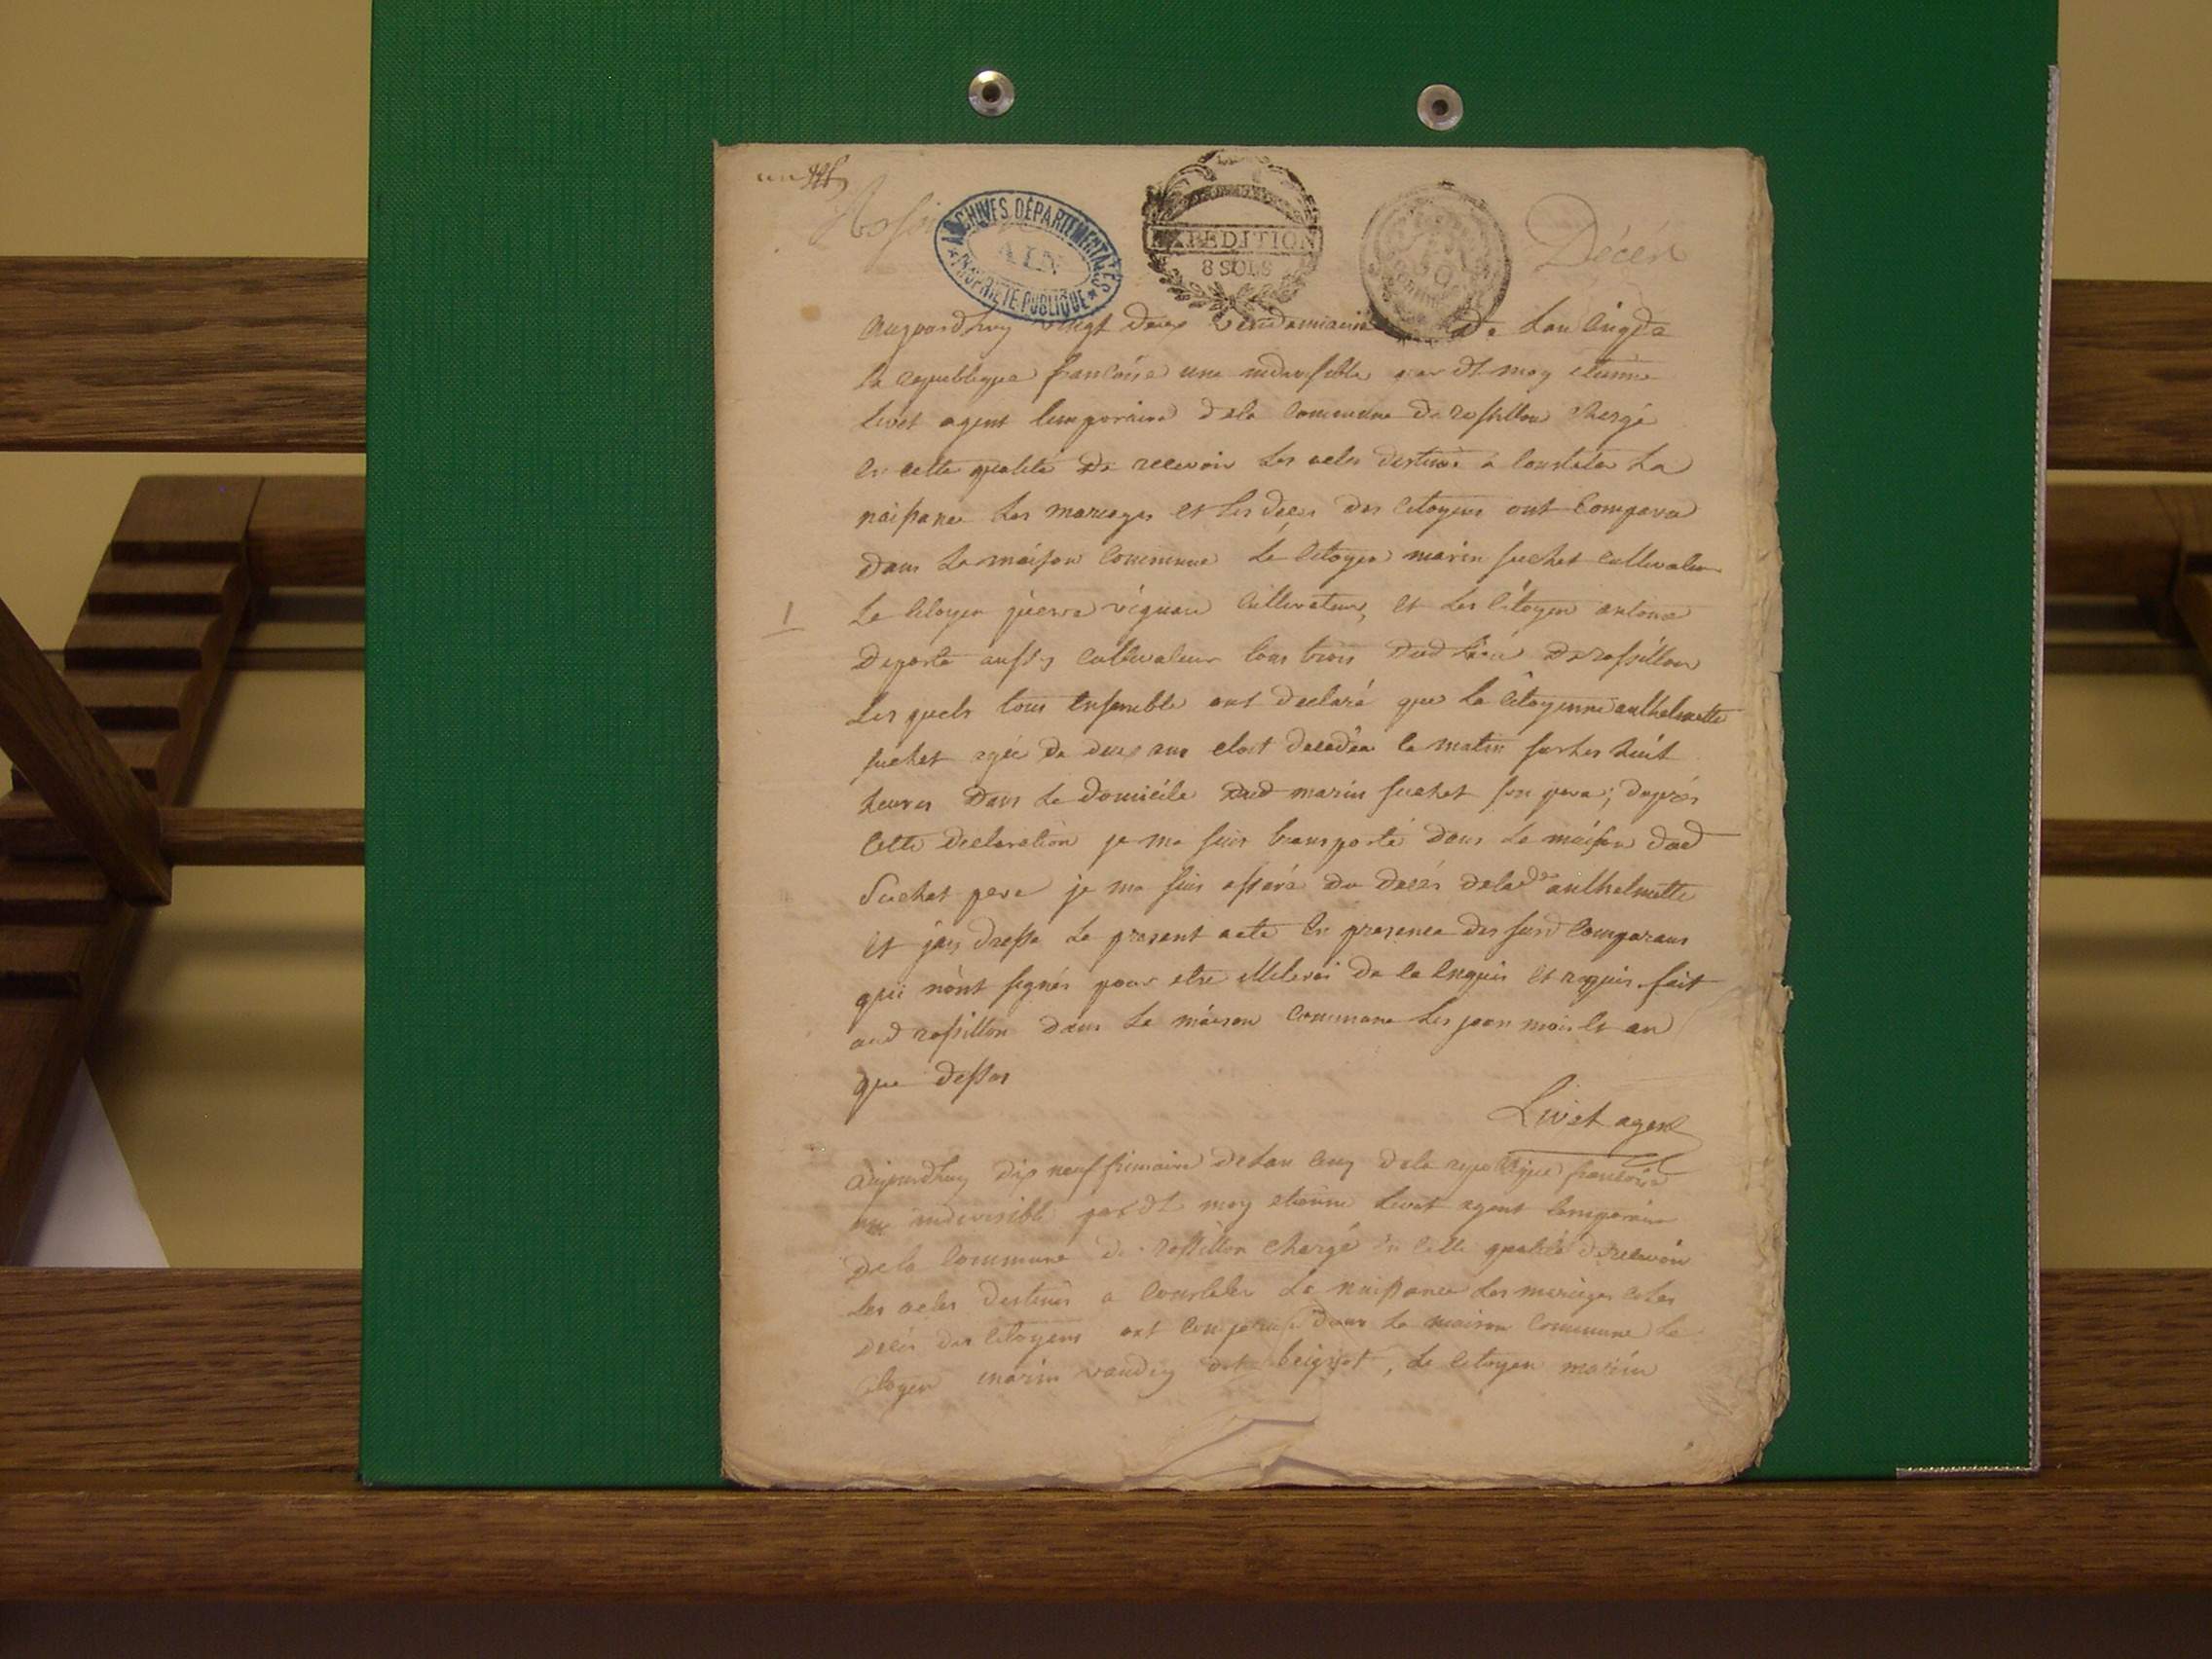 ARCHIVES DÉPARTEMENTALES
AIN
PROPRIÉTÉ PUBLIQUE
EXPEDITION
8 SOLS
Décés
aujourdhuy vingt deux vendemiaire de Lan Cinq de
la republique francoise une indivisible par dt moy etienne
livet agent temporaire dela Commune de rossillon Chargé
En cette qualité de recevoir Les actes destinés a Constater La
naissance Les mariages et Les deces des Citoyens ont Comparu
dans La maison Commune Le Citoyen marin suchet cultivateur
1
Le Citoyen pierre vignau Cultivateur, et Les Citoyen antoine
deporte aussy Cultivateur tous trois dud Lieu de rossillon
Les quels tous Ensemble ont declaré que La Citoyenne anthelmette
suchet agée de deux ans etoit decedée le matin sur Les huit
heures dans Le domicile dud marin suchet son pere ; dapres
Cette declaration je me suis transporté dans La maison dud
Suchet pere je me suis assuré du decés dela de anthelmette
et jay dressé Le present acte En presence des susd Comparans
qui nont signés pour etre illiterés de le Enquis et requis. fait
aud rossillon dans La maison Commune Les jour mois et an
que dessus
Livet agent
aujourdhuy dix neuf frimaire de Lan Cinq dela republique francoise
une indivisible par dt moy etienne Livet agent temporaire
dela Commune de rossillon Chargé En Cette qualité de recevoir
Les actes destinés a Constater La naissance Les mariages et Les
decés des Citoyens ont Comparu dans La maison Commune Le
Citoyen marin vaudey dit beignet, Le Citoyen marin